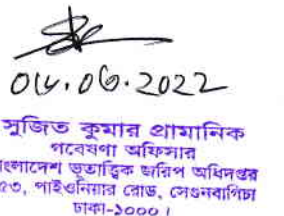 06.06.2022
সুজিত কুমার প্রামানিক
গবেষণা অফিসার
বাংলাদেশ ভূতাত্ত্বিক জরিপ অধিদপ্তর
১৫৩, পাইওনিয়ার রোড, সেগুনবাগিচা
ঢাকা-১০০০।